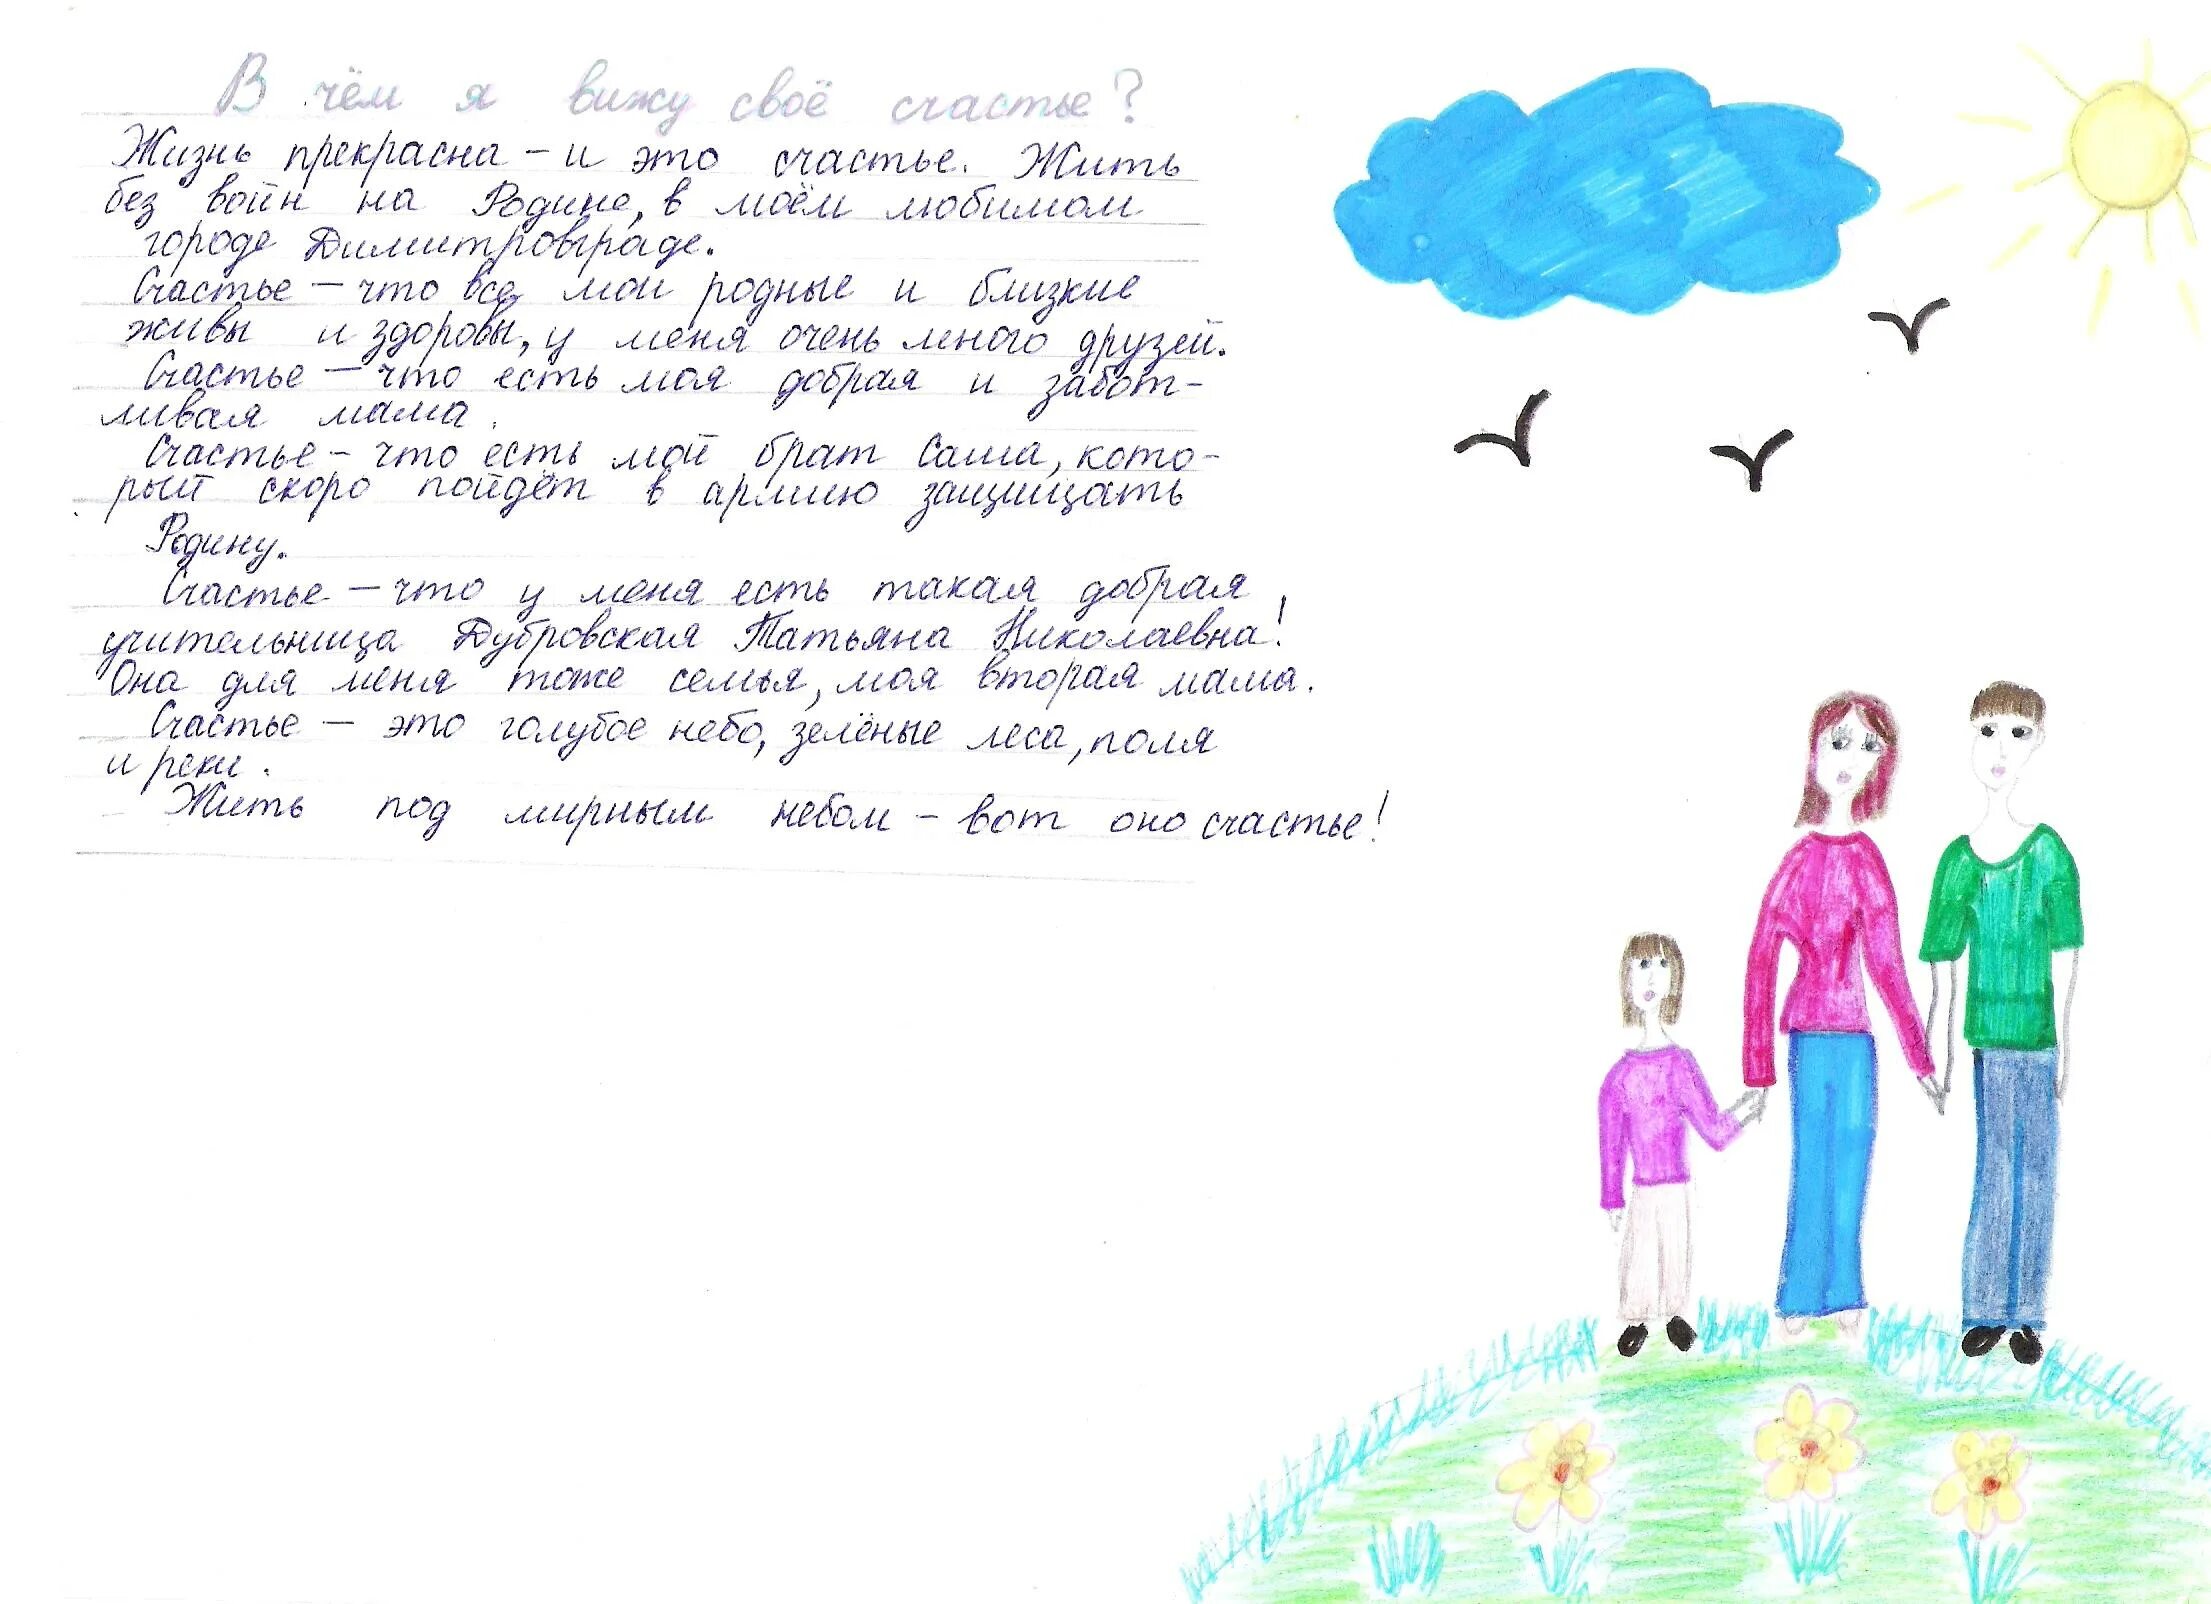 В чём я вижу своё счастье?
Жизнь прекрасна – и это счастье. Жить
без войн на Родине, в моём любимом
городе Димитровграде.
Счастье – что все мои родные и близкие
живы и здоровы, у меня очень много друзей.
Счастье – что есть моя добрая и забот-
ливая мама.
Счастье – что есть мой брат Саша, кото-
рый скоро пойдёт в армию защищать
Родину.
Счастье – что у меня есть такая добрая
учительница Дубровская Татьяна Николаевна!
Она для меня тоже семья, моя вторая мама.
Счастье – это голубое небо, зелёные леса, поля
и реки.
Жить под мирным небом – вот оно счастье!